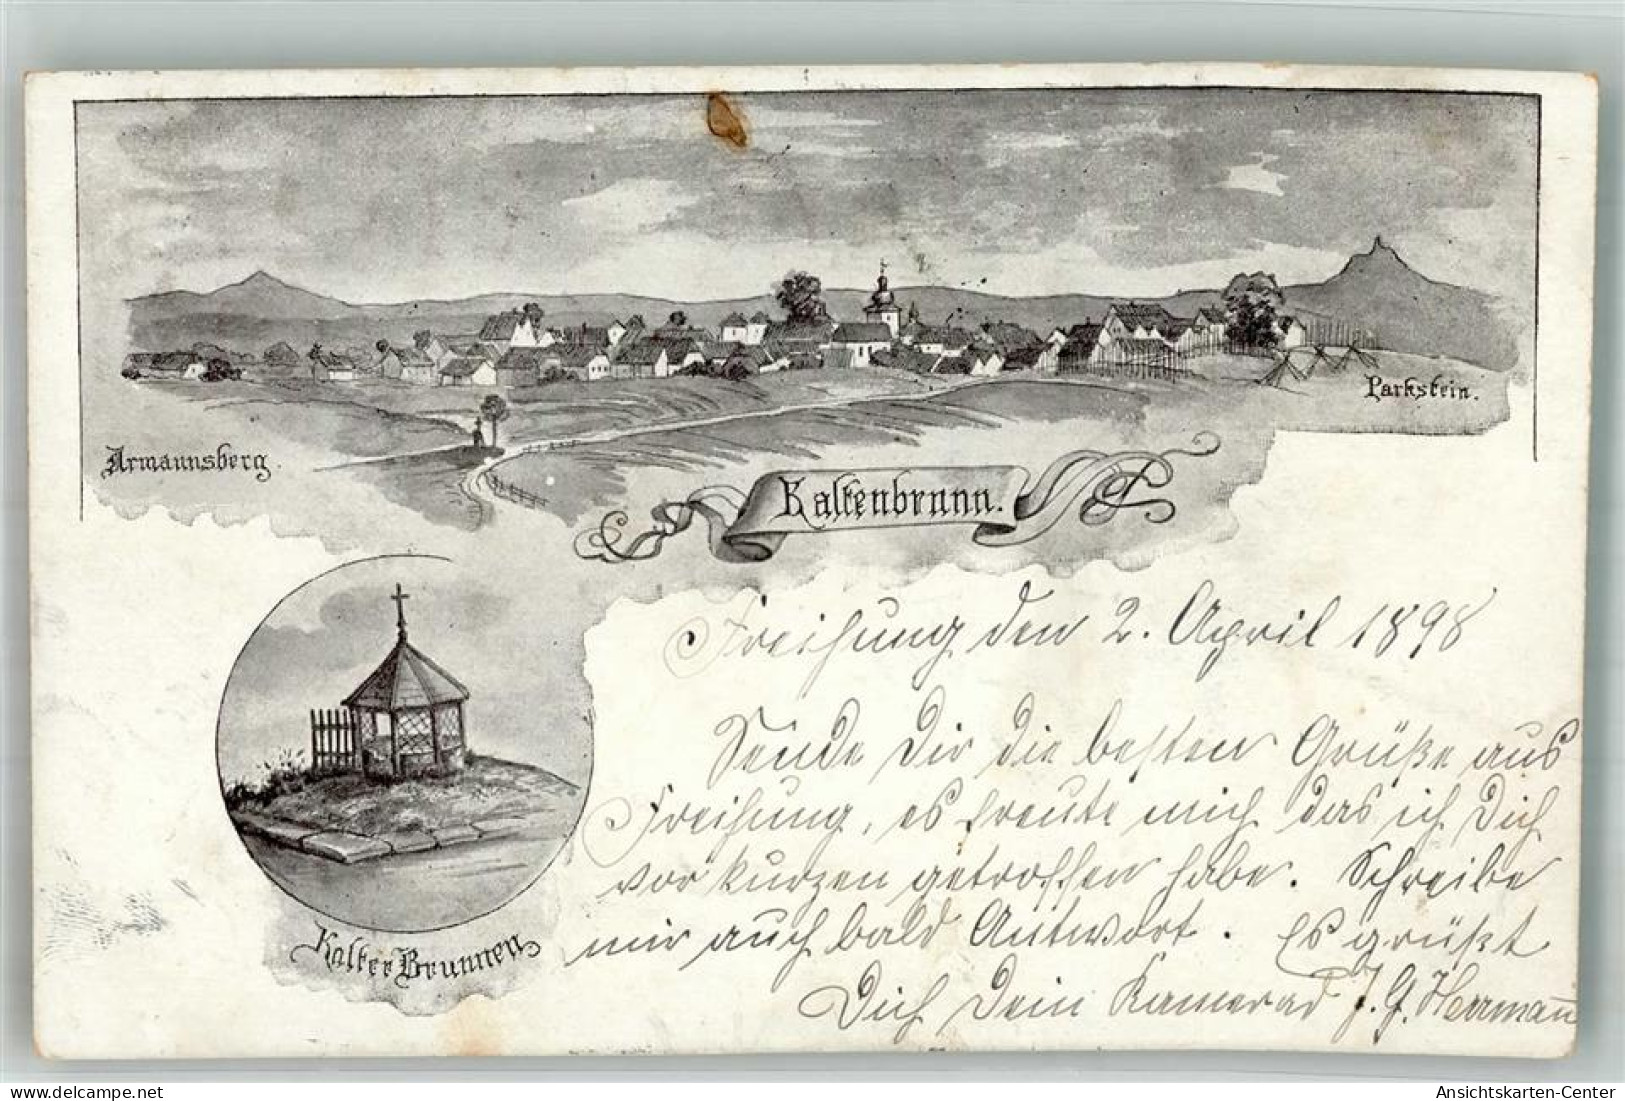 Armannsberg.
Parkstein.
Kaltenbrunn.
Kalter Brunnen
Freihung den 2. April 1898
Sende Dir die besten Grüße aus
Freihung, es freute mich das ich Dich
vor kurzen getroffen habe. Schreibe
mir auch bald Antwort. Es grüßt
Dich Dein Kamerad J. G. Herrmann
Ansichtskarten-Center